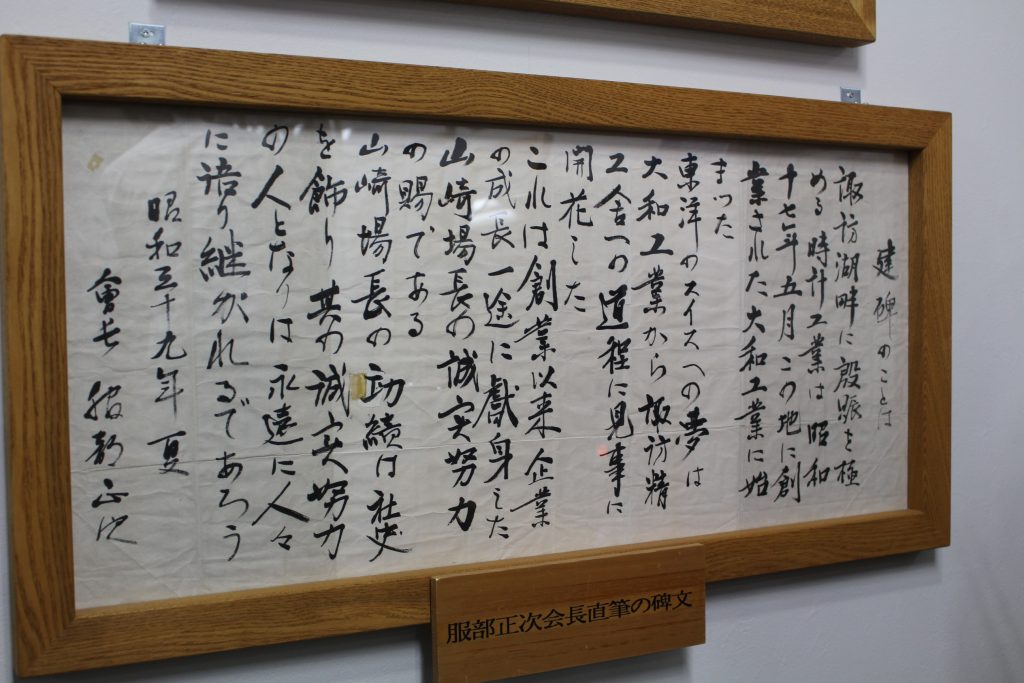 建碑のことば
諏訪湖畔に殷賑を極
める時計工業は昭和
十七年五月この地に創
業された大和工業に始
まった
東洋のスイスへの夢は
大和工業から諏訪精
工舎への道程に見事に
開花した
これは創業以来企業
の成長一途に献身した
山崎場長の誠実努力
の賜である
山崎場長の功績は社史
を飾り其の誠実努力
の人となりは永遠に人々
に語り継がれるであろう
昭和五十九年 夏
會長 服部正次
服部正次会長直筆の碑文